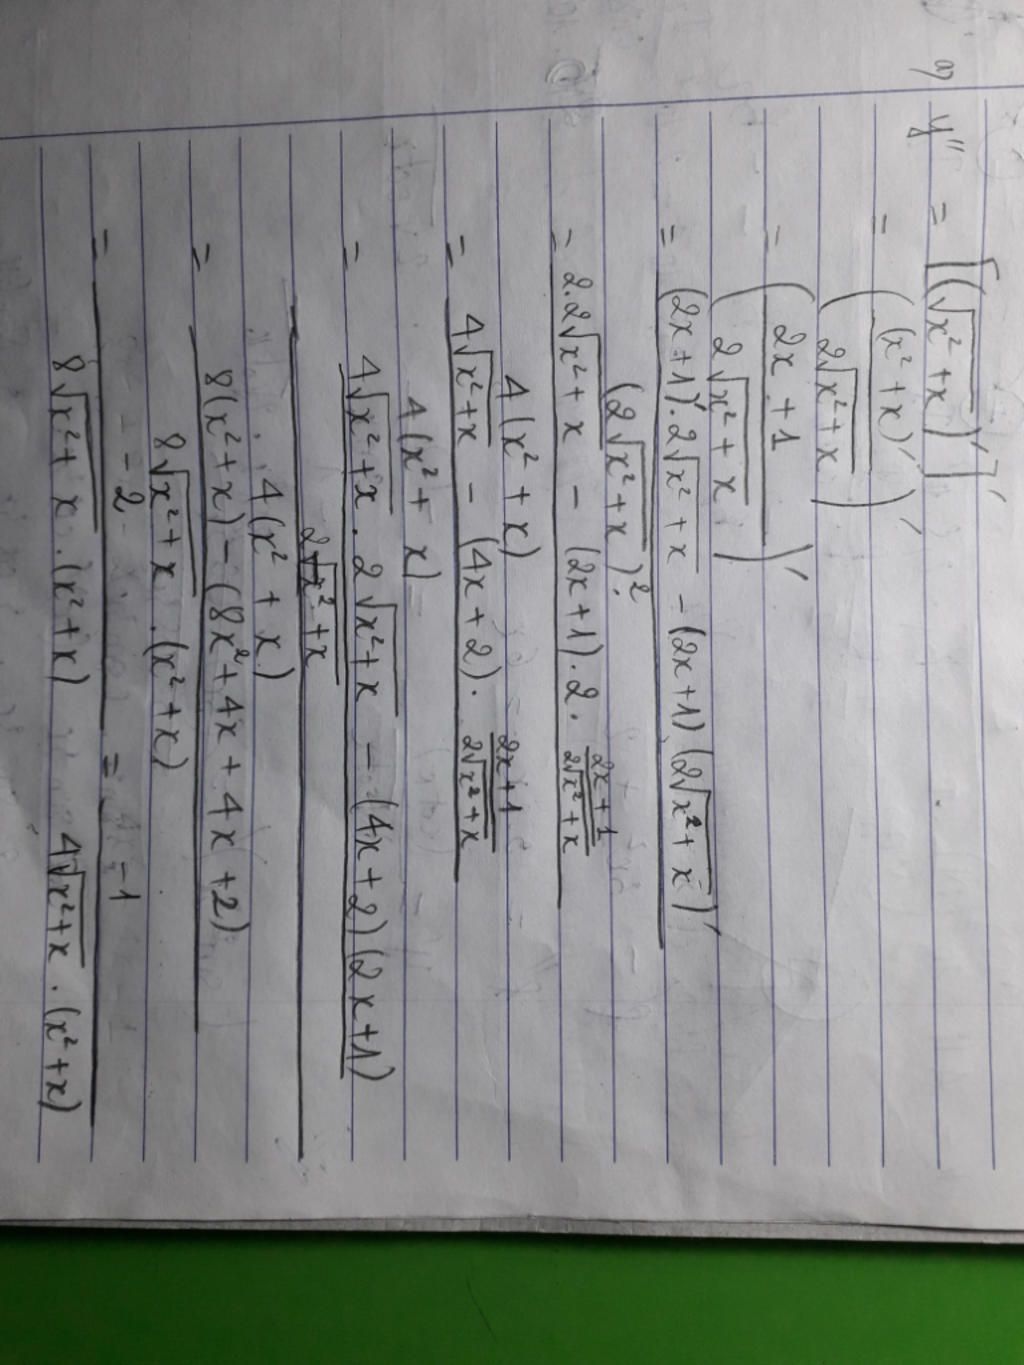 a) y'' = [(√(x² + x))']'
= ((x² + x)' / 2√(x² + x))'
= ((2x + 1) / 2√(x² + x))'
= ((2x + 1)'. 2√(x² + x) - (2x + 1) (2√(x² + x))') / (2√(x² + x))²
= (2.2√(x² + x) - (2x + 1). 2 . (2x + 1)/(2√(x² + x))) / 4(x² + x)
= (4√(x² + x) - (4x + 2). (2x + 1)/(2√(x² + x))) / 4(x² + x)
= ((4√(x² + x) . 2√(x² + x) - (4x + 2)(2x + 1)) / 2√(x² + x)) / 4(x² + x)
= (8(x² + x) - (8x² + 4x + 4x + 2)) / 8√(x² + x) . (x² + x)
= -2 / 8√(x² + x) . (x² + x) = -1 / 4√(x² + x) . (x² + x)